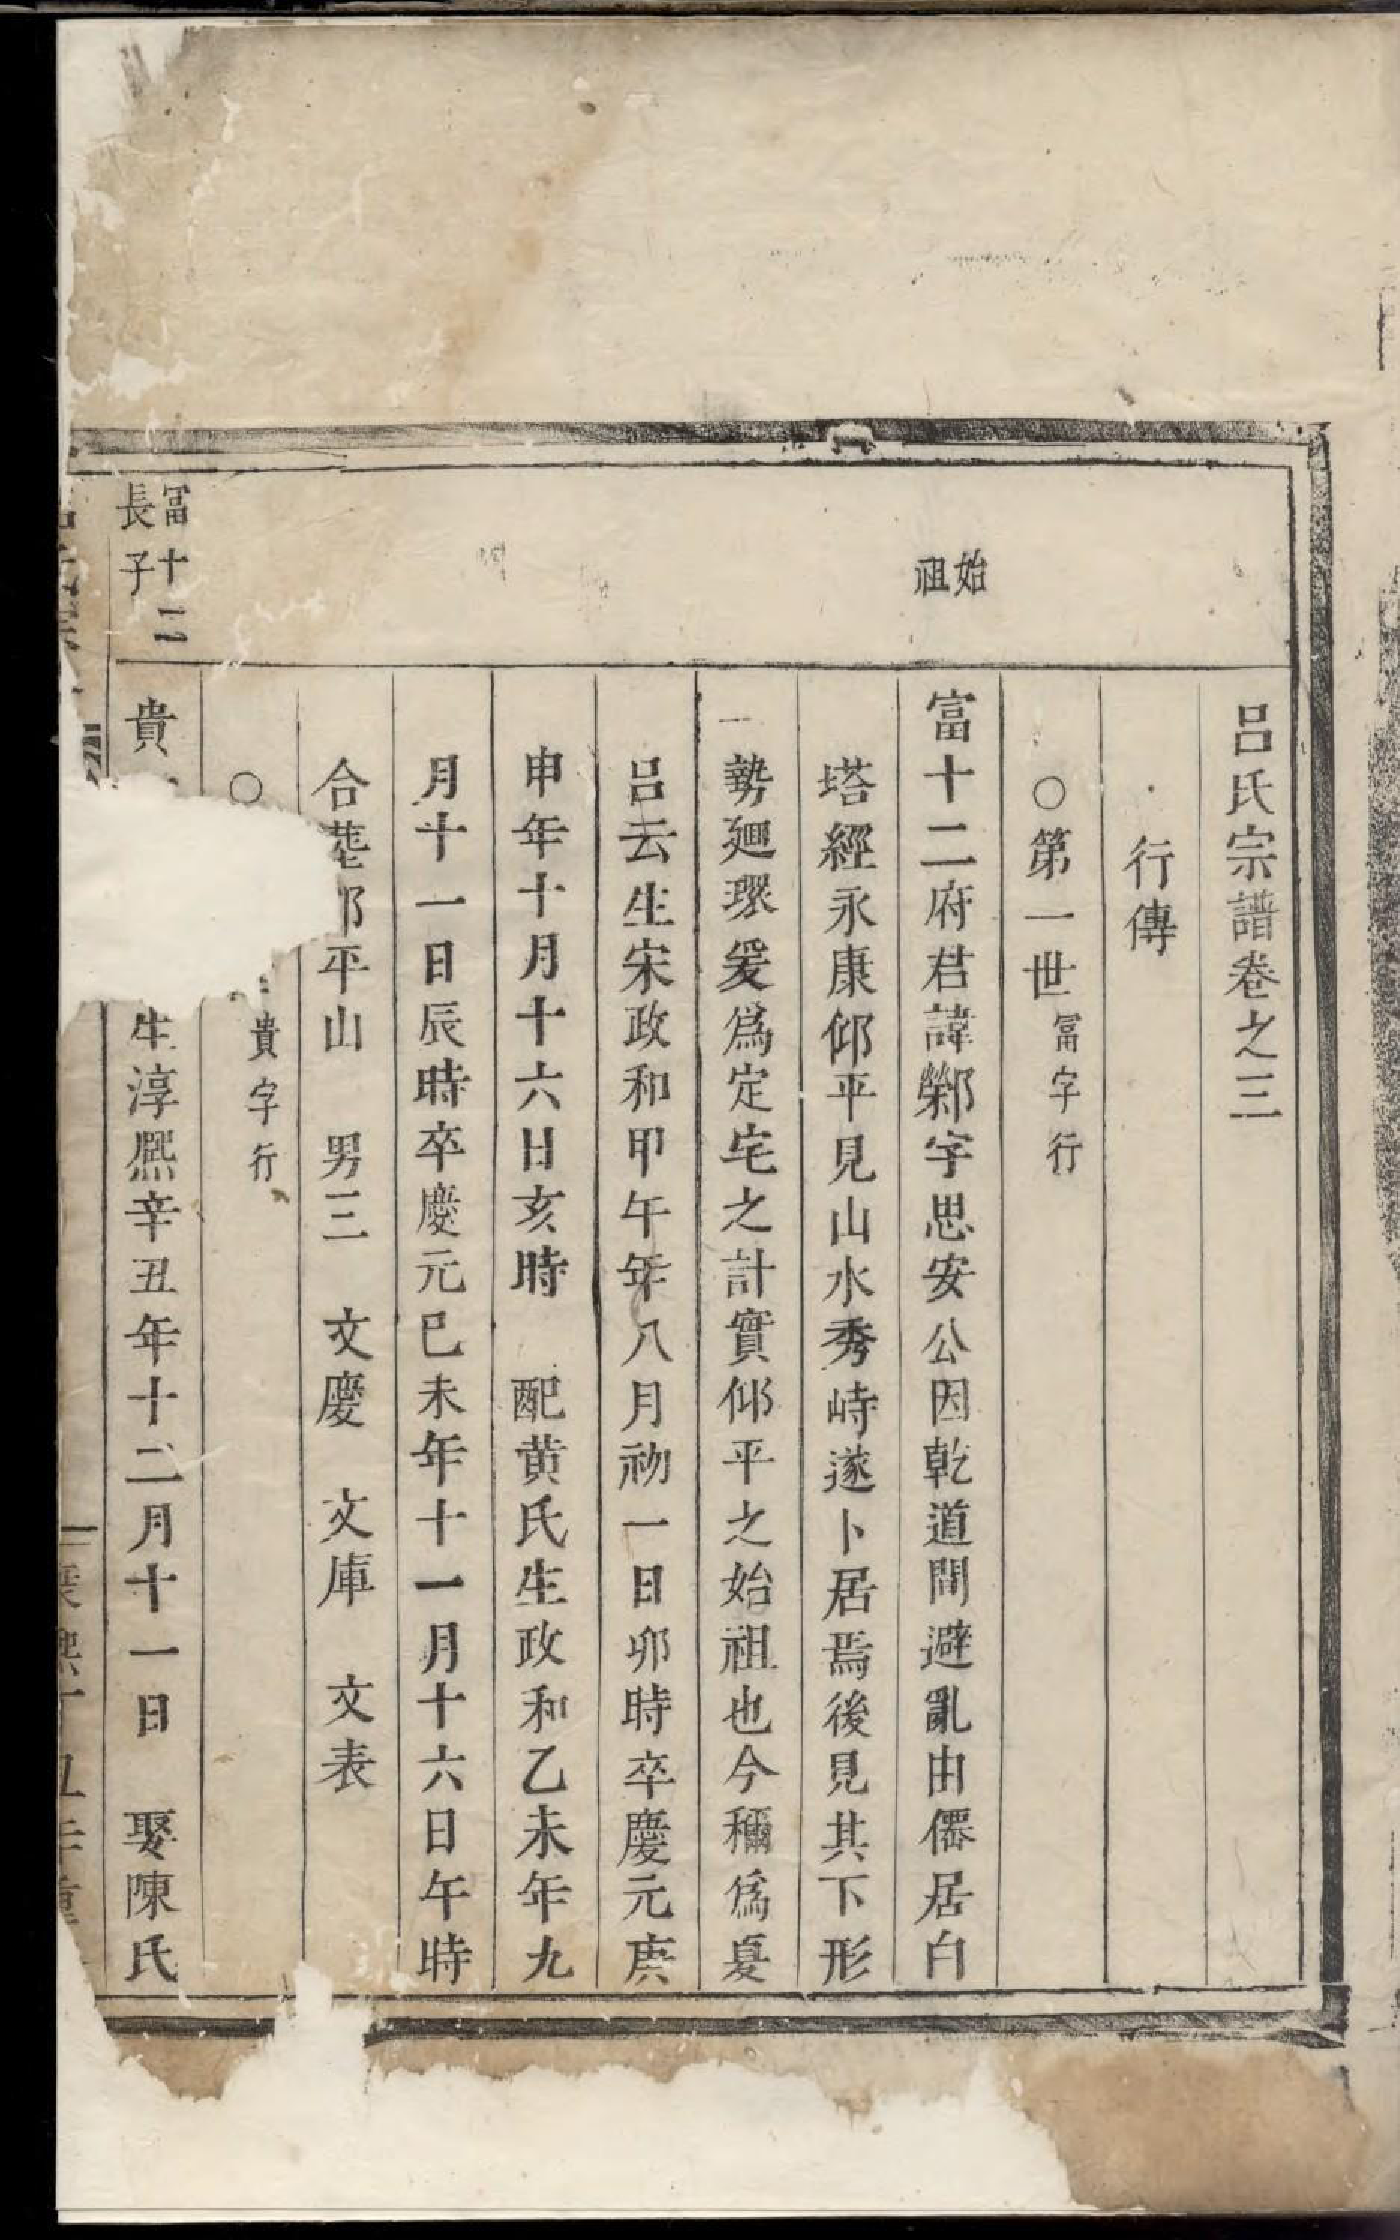 呂氏宗譜卷之三
行傳
○第一世 富字行
始祖
富十二府君諱鄴字思安公因乾道間避亂由僊居白
塔經永康仰平見山水秀峙遂卜居焉後見其下形
勢廻環爰爲定宅之計實仰平之始祖也今稱爲夏
呂云生宋政和甲午年八月初一日卯時卒慶元庚
申年十月十六日亥時 配黃氏生政和乙未年九
月十一日辰時卒慶元己未年十一月十六日午時
合塟 平山 男三 文慶 文庫 文表
○ 貴字行
富十二長子
貴 生淳熈辛丑年十二月十一日 娶陳氏